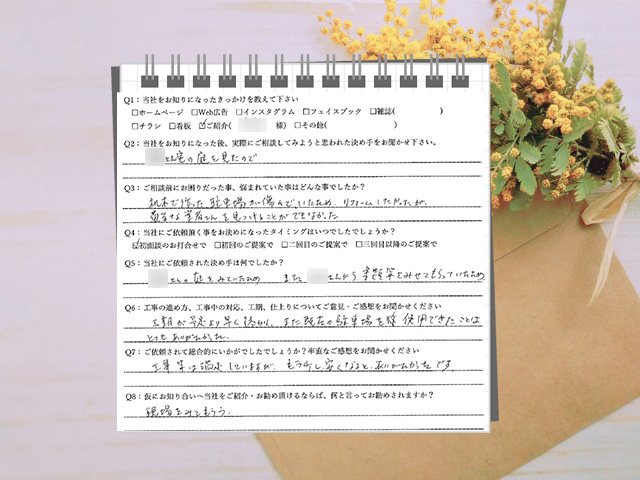 Q1：当社をお知りになったきっかけを教えて下さい
□ホームページ □Web広告 □インスタグラム □フェイスブック □雑誌( )
□チラシ □看板 ☑ご紹介( 様) □その他( )
Q2：当社をお知りになった後、実際にご相談してみようと思われた決め手をお聞かせ下さい。
さん宅の庭を見たので
Q3：ご相談前にお困りだった事、悩まれていた事はどんな事でしたか？
枕木で作った駐車場が傷んでいたため、リフォームしたかったが、
業者さんを見つけることができなかった
Q4：当社にご依頼頂く事をお決めになったタイミングはいつでしたでしょうか？
☑初面談のお打合せで □初回のご提案で □二回目のご提案で □三回目以降のご提案で
Q5：当社にご依頼された決め手は何でしたか？
さんの庭をみていたため また さんから 等をみせてもらっていたため
Q6：工事の進め方、工事中の対応、工期、仕上りについてご意見・ご感想をお聞かせください
工期が予定より早く終わり、また既存の駐車場を 使用できたことは
とてもありがたかった。
Q7：ご依頼されて総合的にいかがでしたでしょうか？率直なご感想をお聞かせください
工事等は満足していますが、もう少し安くなると、ありがたかったです
Q8：仮にお知り合いへ当社をご紹介・お勧め頂けるならば、何と言ってお勧めされますか？
現場をみてもらう。